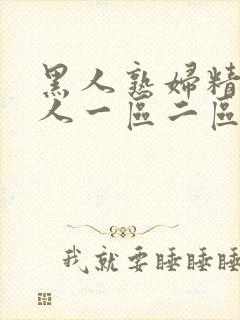 黑人熟婦精
人一區二區
我就要睡睡睡